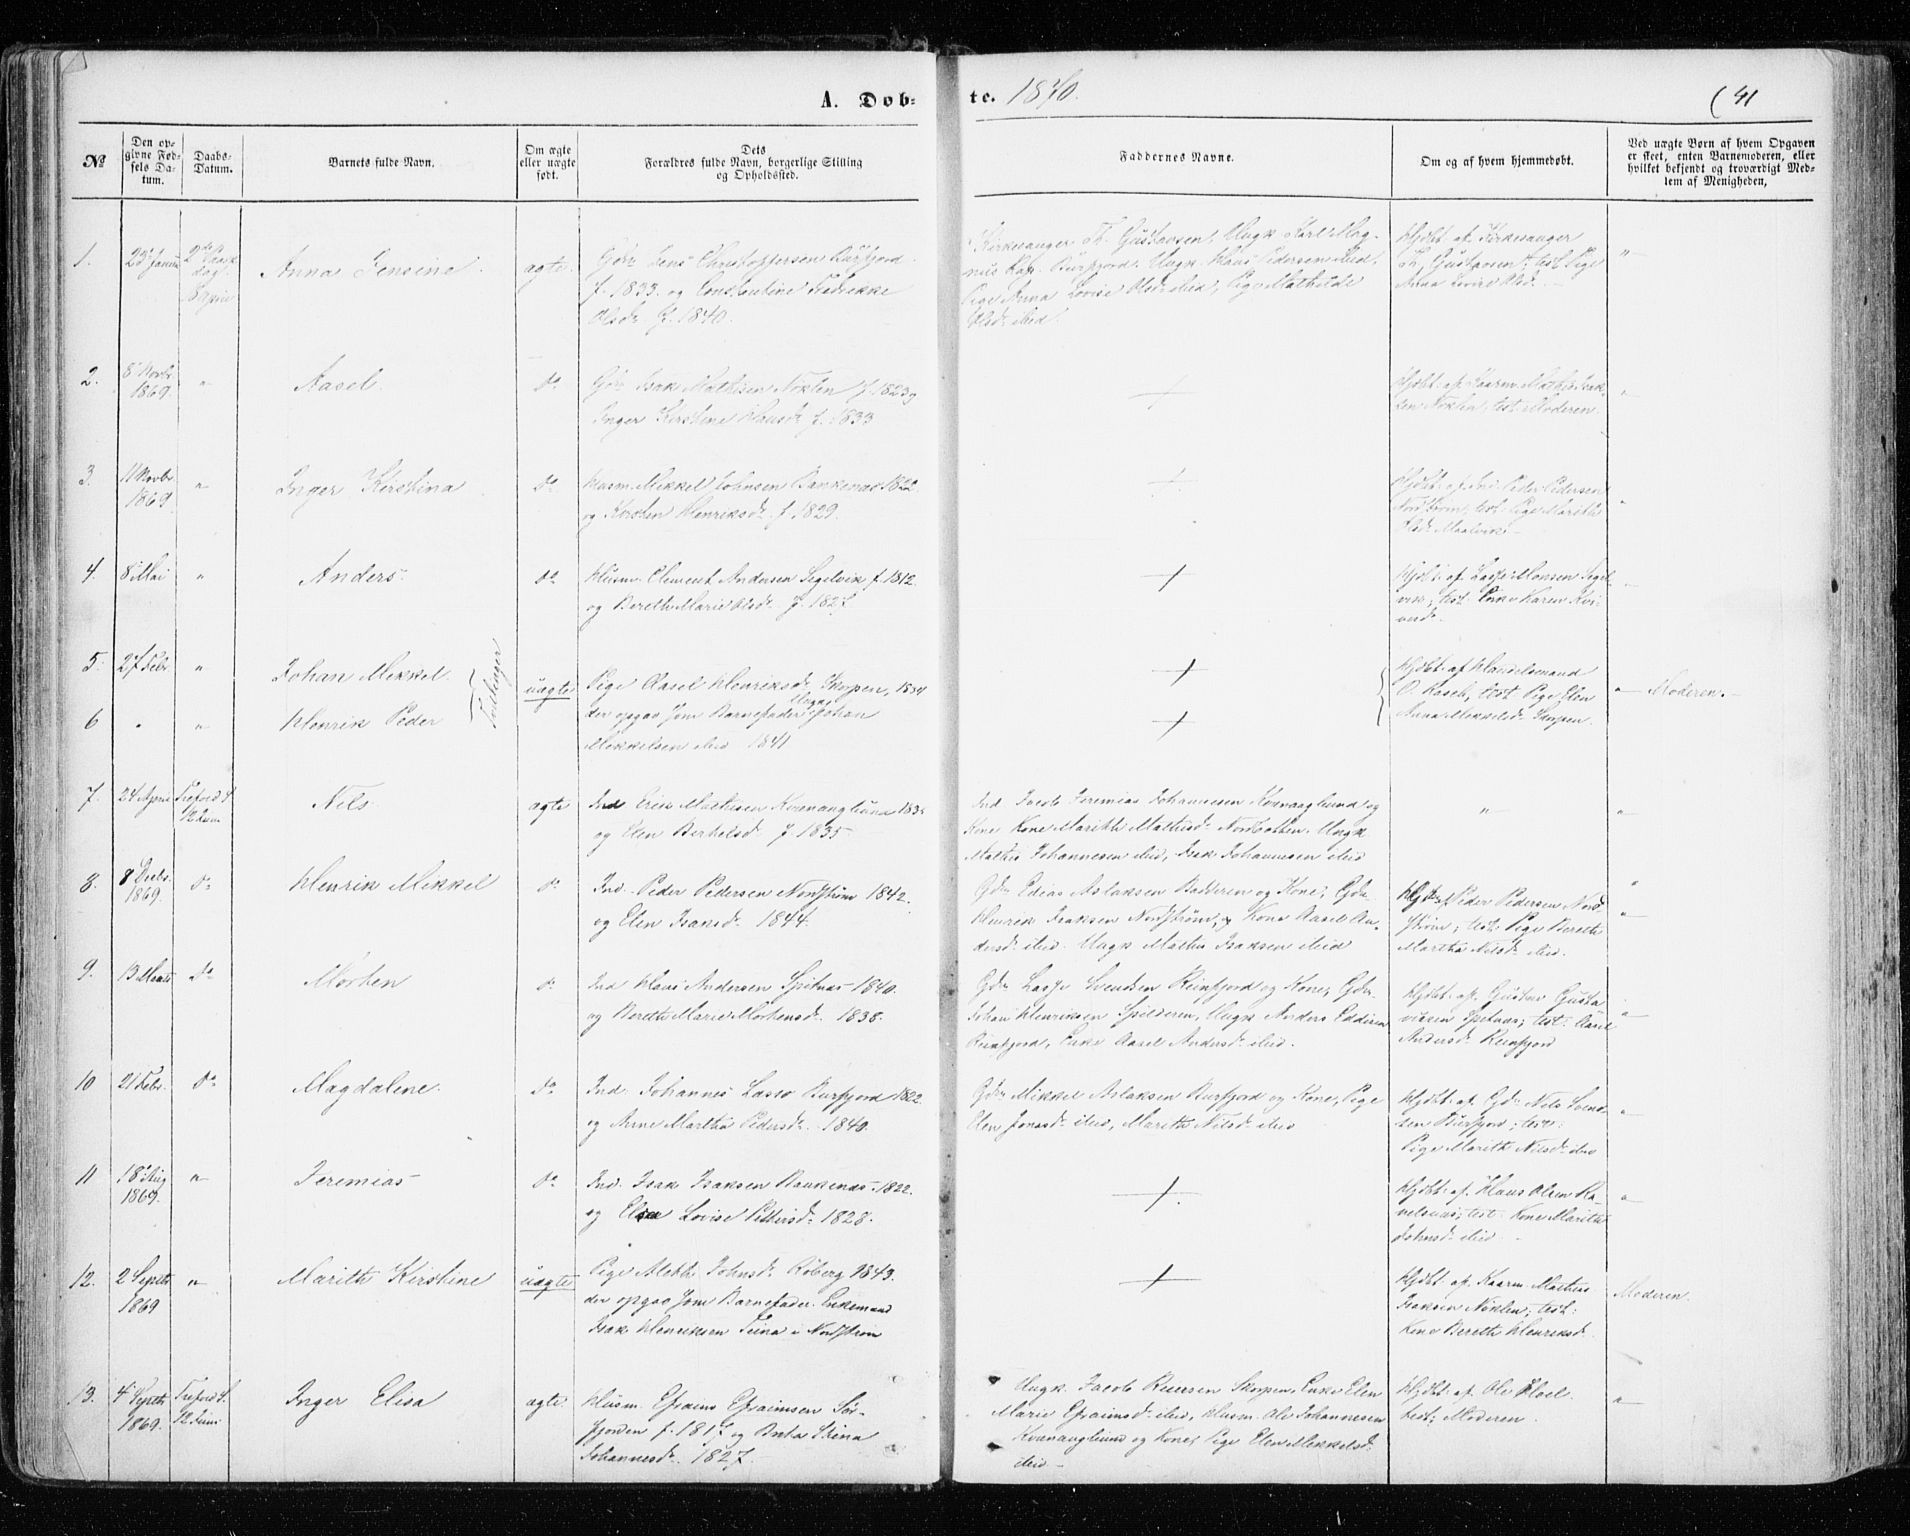 A. Døb-
te. 1870.
41
№
Den op-
givne Fød-
sels Da-
tum.
Daabs-
Datum.
Barnets fulde Navn.
Om ægte
eller uægte
født.
Dets
Forældres fulde Navn, borgerlige Stilling
og Opholdssted.
Faddernes Navne.
Om og af hvem hjemmedøbt.
Ved uægte Børn af hvem Opgaven
er skeet, enten Barnemoderen, eller
hvilket bekjendt og troværdigt Med-
lem af Menigheden,
1.
Anna Jensine
ægte
Jens Christophersen Burfjord
f. 1833. og Constantine Fredrikke
Olsdr f. 1840.
Kirkesanger Th. Gustavsen, Ungk Karl Mag-
nus Burfjord, Ungk. Hans Pedersen ibid,
Pige Anna Lovise Olsdr ibid, Pige Mathilde
Olsdr ibid.
Hjdbt af Kirkesanger
Th. Gustavsen, test Pige
Anna Lovise Olsd.
2.
8 Novbr
1869
"
Aasel
do
Isak Mathisen Nøklen f. 1823 og
Inger Kirstine Hansdr f. 1833
+
Hjdbt af Kaarm. Mathis Isak-
sen Nøklen, test. Moderen.
"
3.
11 Novbr
1869
"
Inger Kirstina
do
Husm. Mikkel Johnsen Baukenæs 1822
og Kirsten Henriksdr f. 1829.
+
Hjdbt af Ind. Peder Pedersen
Nordstrøm, test Pige Marith
Olsdr
"
4.
8 Mai
"
Anders
do
Husm. Clement Andersen Segelvik f. 1812.
og Bereth Marie Olsdr f. 1827.
+
Hjdbt af Lasse Monsen Segel-
vik, test. Enke Karen
"
5.
27 Febr
"
Johan Mikkel
Tvillinger
uægte
Pige Aasel Henriksdr Skorpen, 1834
der opgav som Barnefader Ungk Johan
Mikkelsen ibid 1841
+
Hjdbt af Handelsmand
O. Kaseb, test Pige Elen
Anna Mikkelsdr Skorpen.
" Moderen.
6
"
"
Henrik Peder
+
7.
24 April
Trefold. S.
12 Juni
Nels
ægte
Ind Erik Mathisen Kvænangbund
og Elen Berthelsdr f. 1835
Ind Jacob Jeremias Johannesen Kvænangbund og
Kone, Kone Marith Mathisdr Nordbotten. Ungk
Mathis Johannesen ibid, Isak Johannesen ibid
"
"
8.
8 Decbr.
1869.
do
Henrik Mikkel
do
Ind. Peder Pedersen Nordstrøm 1842.
og Elen Isaksdr 1844.
Gdr Edias Aslaksen Badderen og Kone, Gdr
Henrik Isaksen Nordstrøm og Kone Aasel An-
dersdr ibid. Ungk Mathis Isaksen ibid
Hjdbt af Peder Pedersen Nord-
strøm; test. Pige Bereth
Martha Nilsdr ibid.
"
9.
13 Marts
do
Morten
do
Ind Hans Andersen Spilnæs 1840.
og Bereth Marie Mortensdr 1838.
Gdr Lasse Svendsen Reinfjord og Kone, Gdr
Johan Henriksen Spilderen, Ungk Anders
Reinfjord, Enke Aasel Andersdr ibid.
Hjdbt af Gustav Gusta-
vsen Spilnæs; test. Aasel
Andersdr Reinfjord
"
10
21 Febr.
do
Magdalene
do
Ind. Johannes Lasso Burfjord 1822.
og Anne Martha Pedersdr 1840.
Gdr Mikkel Aslaksen Burfjord og Kone, Pige
Elen Jonasdr ibid, Marith Nilsdr ibid
Hjdbt af Gdr Nils Svend-
sen Burfjord; test:
Pige Marith Nilsdr ibid
"
11
18 Aug
1869.
"
Jeremias
do
Ind. Isak Isaksen Baukenæs 1822.
og Elen Lovise Pettersdr 1828.
+
Hjdbt af Klaus Olsen Ra-
velsnæs; test Kone Marith
Johnsdr ibid.
"
12.
2 Septbr
1869
"
Marith Kirstine
uægte
Pige Meth Johnsdr Roberg 1843.
der opgav som Barnefader Enkemand
Isak Henriksen i Nordstrøm
+
Hjdbt af Kaarm. Mathis
Isaksen Nøklen; test:
Kone Bereth Henriksdr.
Moderen.
13.
4 Septbr
1869.
Trefold. S.
12 Juni
Inger Elisa
ægte.
Husm. Efraim Efraimsen Sør-
fjorden f. 1817 og Anta Stina
Johannesdr. 1827.
Ungk. Jacob Skorpen, Enke Elen
Marie Efraimsdr ibid, Husm. Ole Johannesen
Kvænangbund og Kone, Pige Elen Mikkelsdr
ibid
Hjdbt. af Ole
test: Moderen.
"